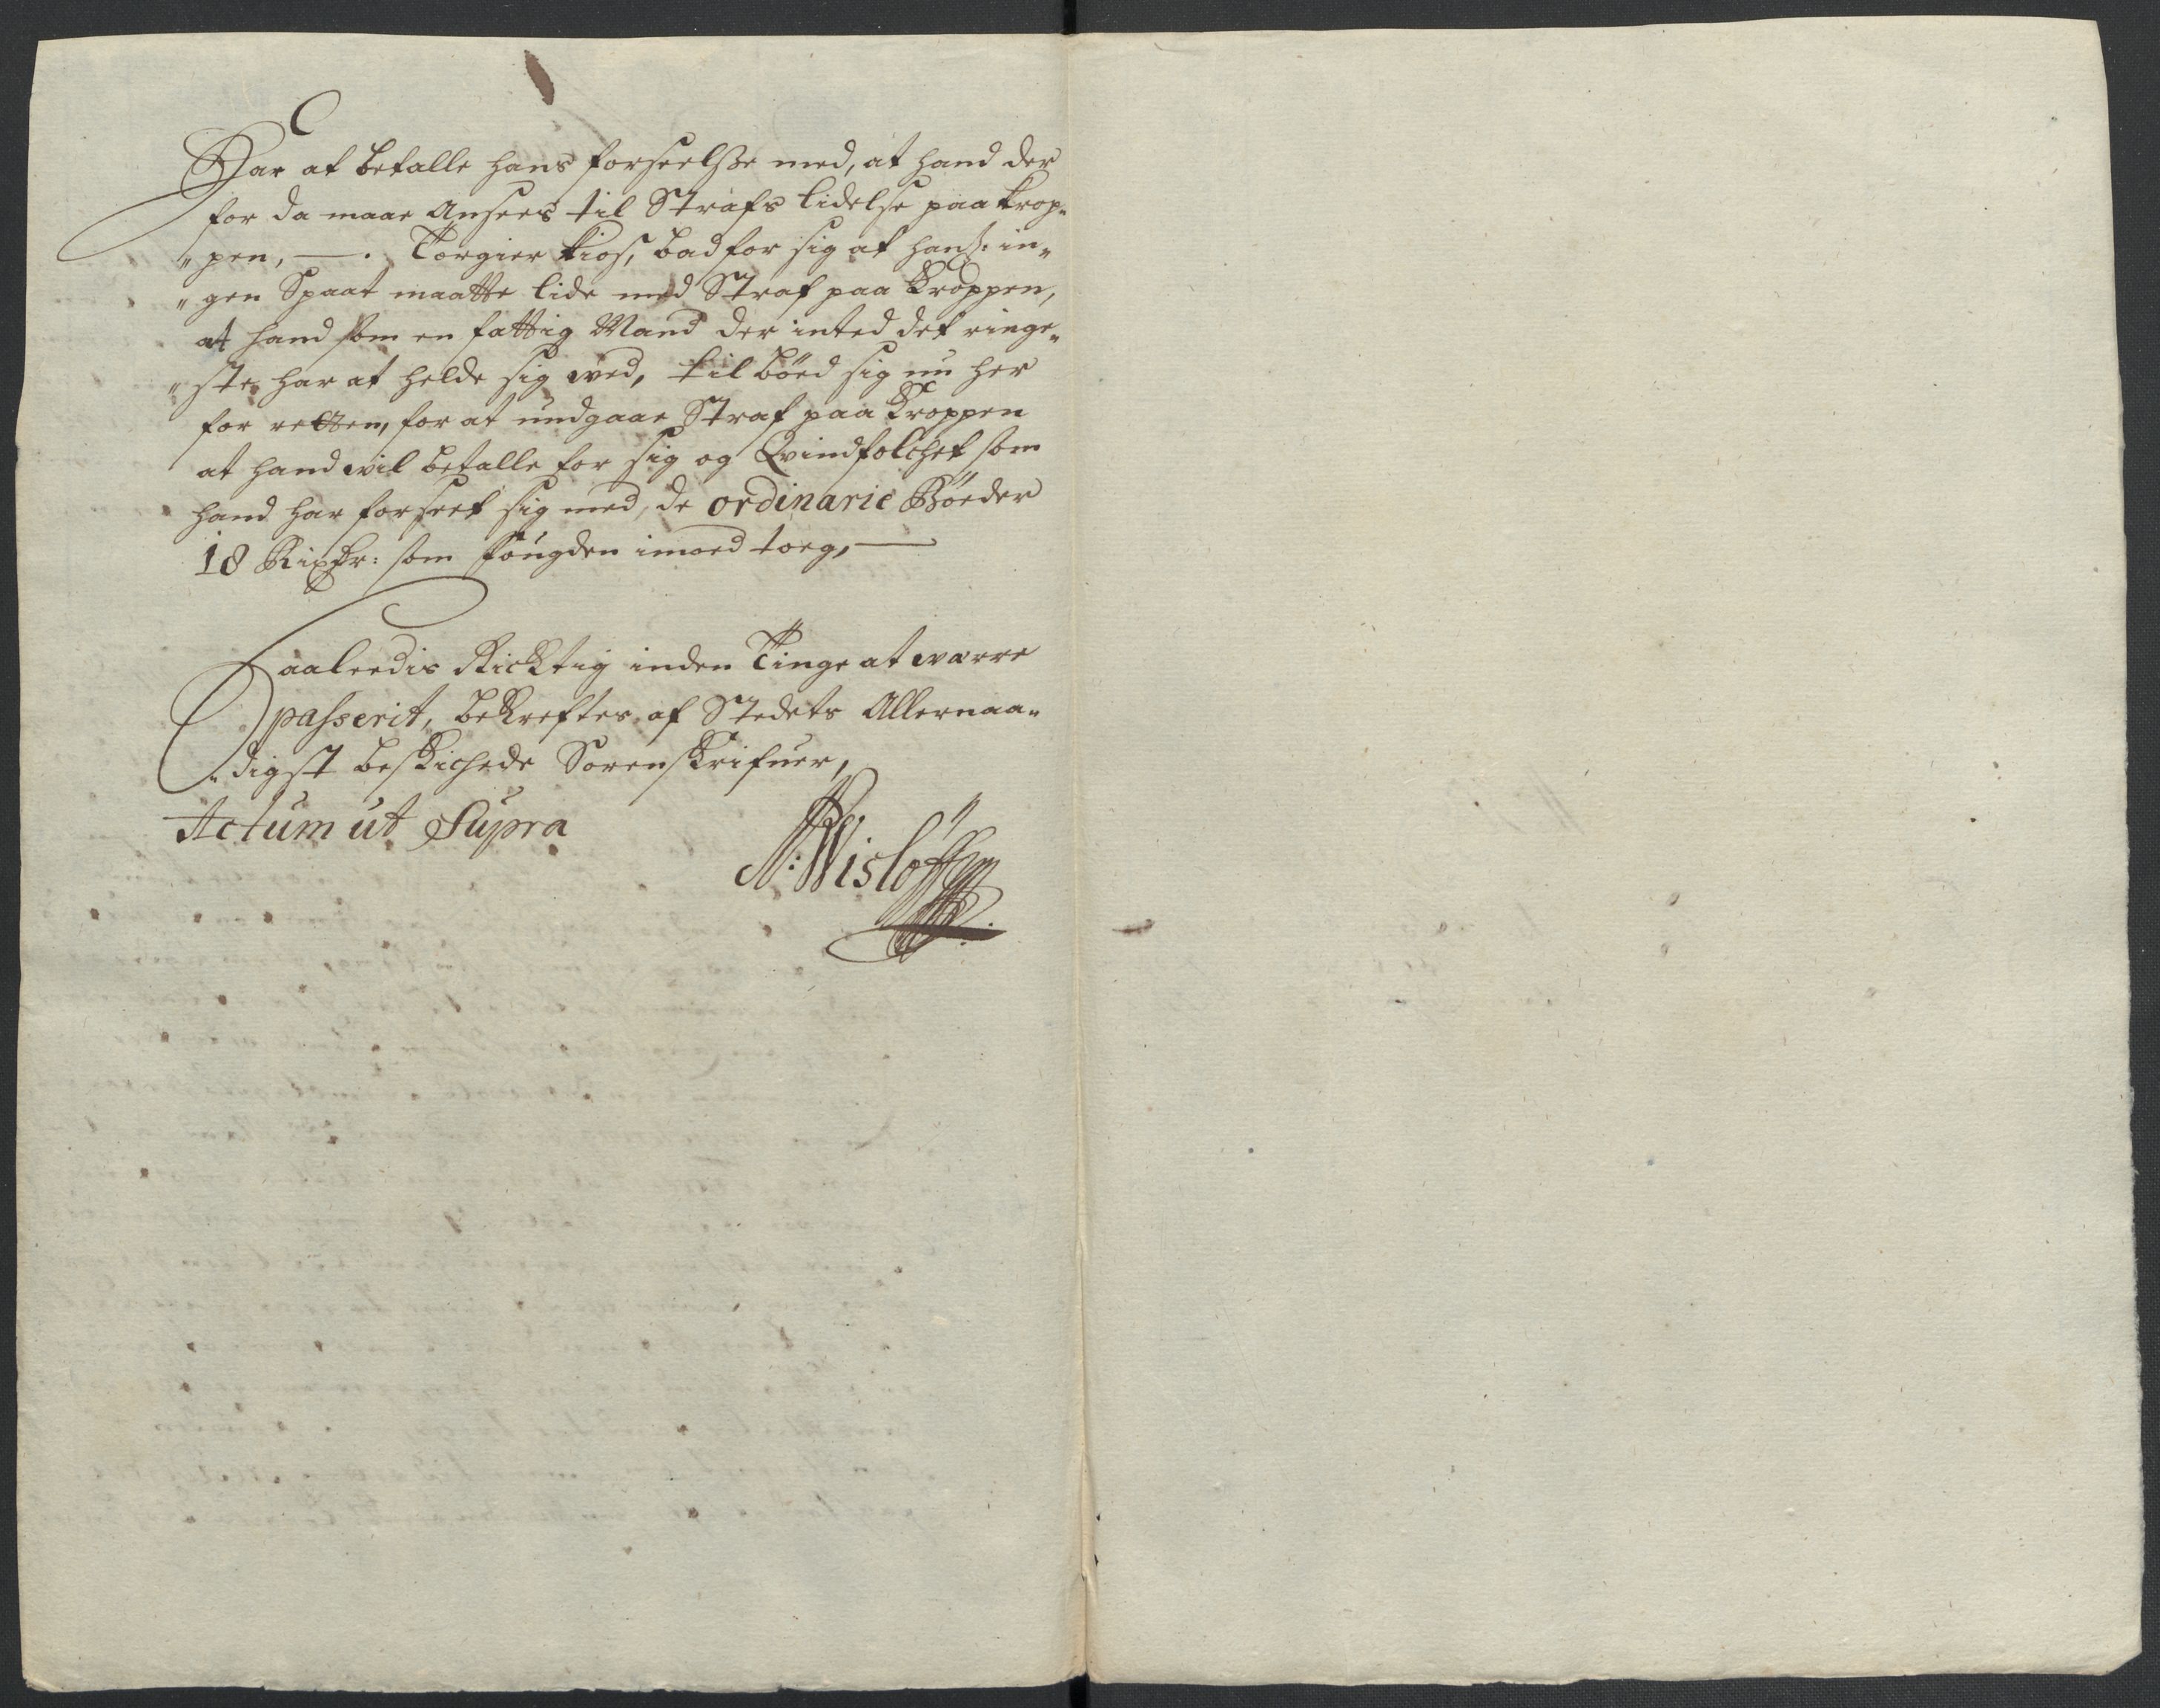 Har at betalle hans forseelsse med, at hand der
for da maae Ansees til Strafs lidelse paa krop„
„pen, —. Torgier Kios, bad for sig at hand in„
„gen Spaat maatte lide med Straf paa Kroppen,
at hand som en fattig Mand der inted det ringe„
„ste har at helde sig wed, til bôed sig nu her
for retten, for at undgaae Straf paa Kroppen
at hand wil betalle for sig og Qvindfolchet som
hand har forseet sig med, de ordinarie Bôeder
18 Rixdr: som fougden imoed toeg, —
Saaleedis Ricktig inden Tinge at wærre
passerit, bekreftes af Stedets Allernaa„
„digst beskichede Sorenskrifuer,
Actum ut Supra
N: Wisløff